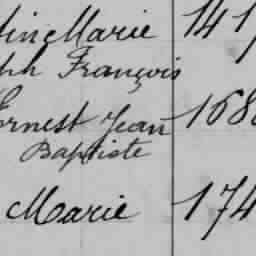 Marie 141
François
Ernest Jean 168
Baptiste
Marie 174